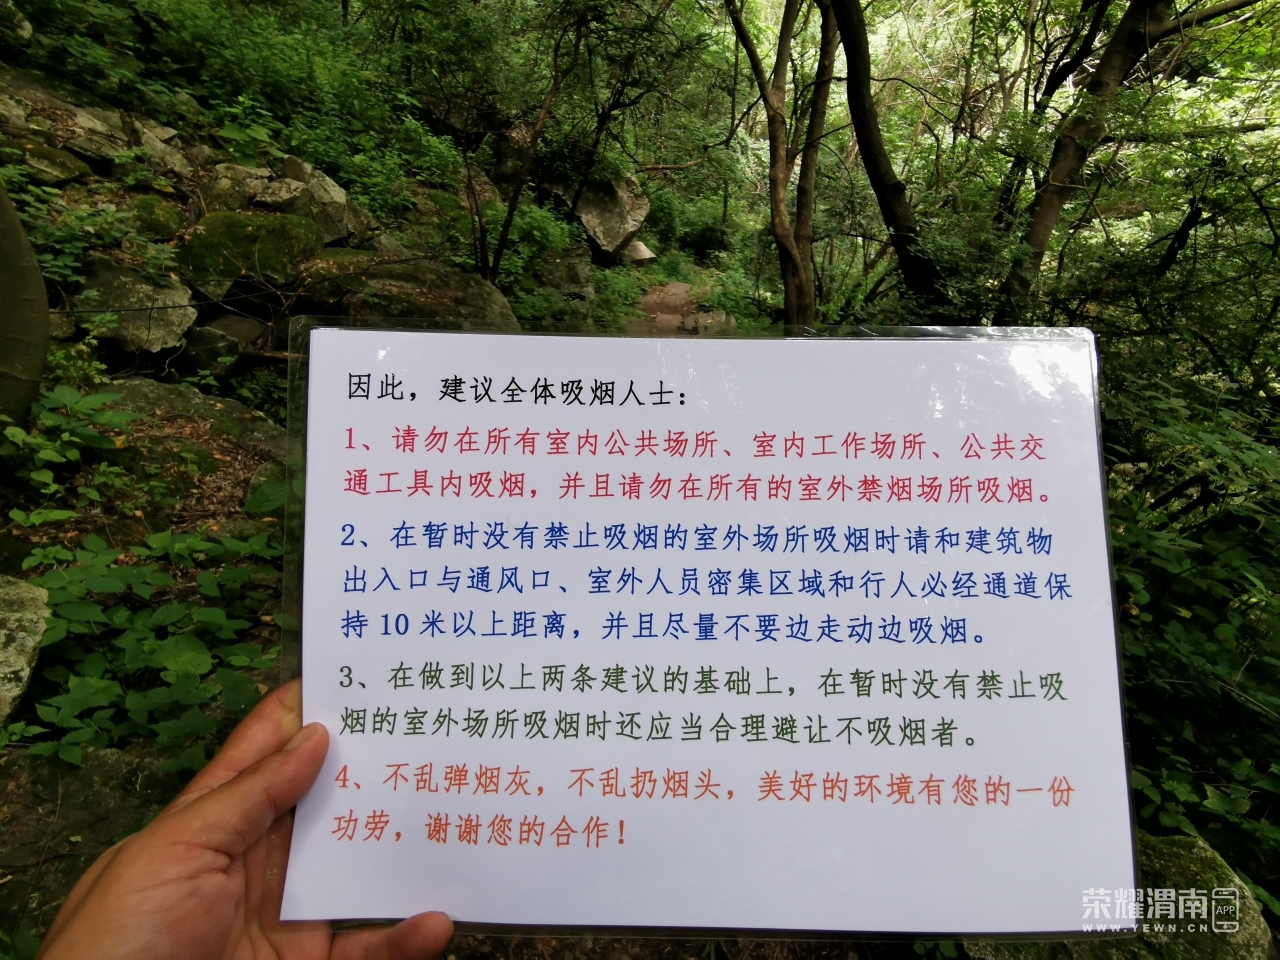 因此，建议全体吸烟人士：
1、请勿在所有室内公共场所、室内工作场所、公共交
通工具内吸烟，并且请勿在所有的室外禁烟场所吸烟。
2、在暂时没有禁止吸烟的室外场所吸烟时请和建筑物
出入口与通风口、室外人员密集区域和行人必经通道保
持 10 米以上距离，并且尽量不要边走动边吸烟。
3、在做到以上两条建议的基础上，在暂时没有禁止吸
烟的室外场所吸烟时还应当合理避让不吸烟者。
4、不乱弹烟灰，不乱扔烟头，美好的环境有您的一份
功劳，谢谢您的合作！
荣耀渭南 APP
WWW.YEWN.CN